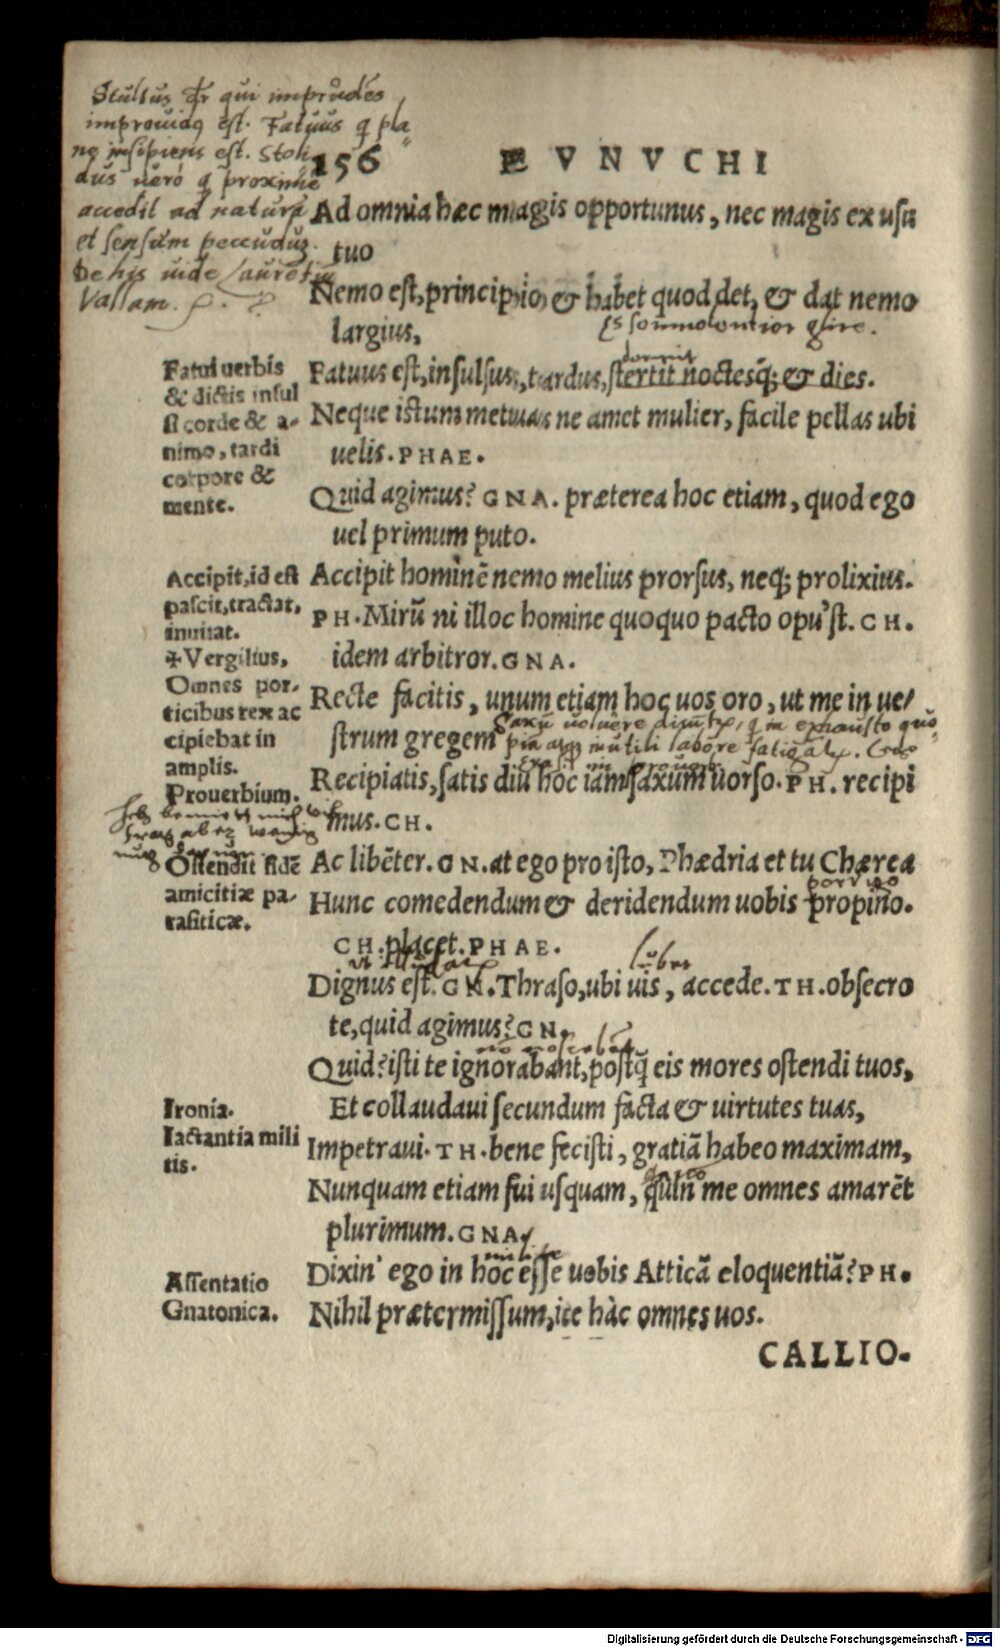 Stultus dr qui imprudens
improuidus est. Fatuus q pla
ne insipiens est. Stoli
dus uero q proxime
accedit ad naturā
et sensum pecudum.
De his uide Laurentiū
Vallam.
156 EVNVCHI
Ad omnia hæc magis opportunus, nec magis ex usu
tuo
Nemo est, principio & habet quod det, & dat nemo
largius,
Es somnolentior glire.
dormit
Fatuus est, insulsus, tardus, stertit noctesq́; & dies.
Neque istum metuas ne amet mulier, facile pellas ubi
uelis. PHAE.
Quid agimus? GNA. præterea hoc etiam, quod ego
uel primum puto.
Accipit hominē nemo melius prorsus, neq; prolixius.
PH. Mirū ni illoc homine quoquo pacto opu'st. CH.
idem arbitror. GNA.
Recte facitis, unum etiam hoc uos oro, ut me in ue/
Saxū uoluere dicūtur, q in exhausto quo
strum gregem
piā atq; inutili labore fatigātur.
Recipiatis, satis diu hoc iam saxum uorso. PH. recipi
mus. CH.
Ac libēter. GN. at ego pro isto, Phædria et tu Chærea
porrigo
Hunc comedendum & deridendum uobis propino.
CH. placet. PHAE.
lubet
Dignus est. GN. Thraso, ubi uis, accede. TH. obsecro
te, quid agimus? GN.
Quid? isti te ignorabant, postq̄ eis mores ostendi tuos,
Et collaudaui secundum facta & uirtutes tuas,
Impetraui. TH. bene fecisti, gratiā habeo maximam,
Nunquam etiam fui usquam, quin me omnes amarēt
plurimum. GNA.
milite
Dixin' ego in hoc esse uobis Atticā eloquentiā? PH.
Nihil prætermissum, ite hàc omnes uos.
CALLIO-
Fatui uerbis
& dictis insul
si corde & a-
nimo, tardi
corpore &
mente.
Accipit, id est
pascit, tractat,
inuitat.
✢Vergilius,
Omnes por-
ticibus rex ac
cipiebat in
amplis.
Prouerbium.
Ostendit fidē
amicitiæ pa-
rasiticæ.
Ironia.
Iactantia mili
tis.
Assentatio
Gnatonica.
Digitalisierung gefördert durch die Deutsche Forschungsgemeinschaft - DFG